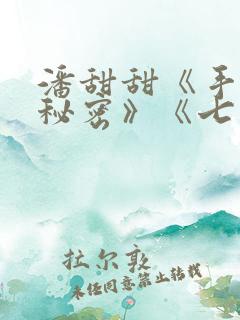 潘甜甜《手
秘密》《七
拉尔敦
未经同意禁止转载